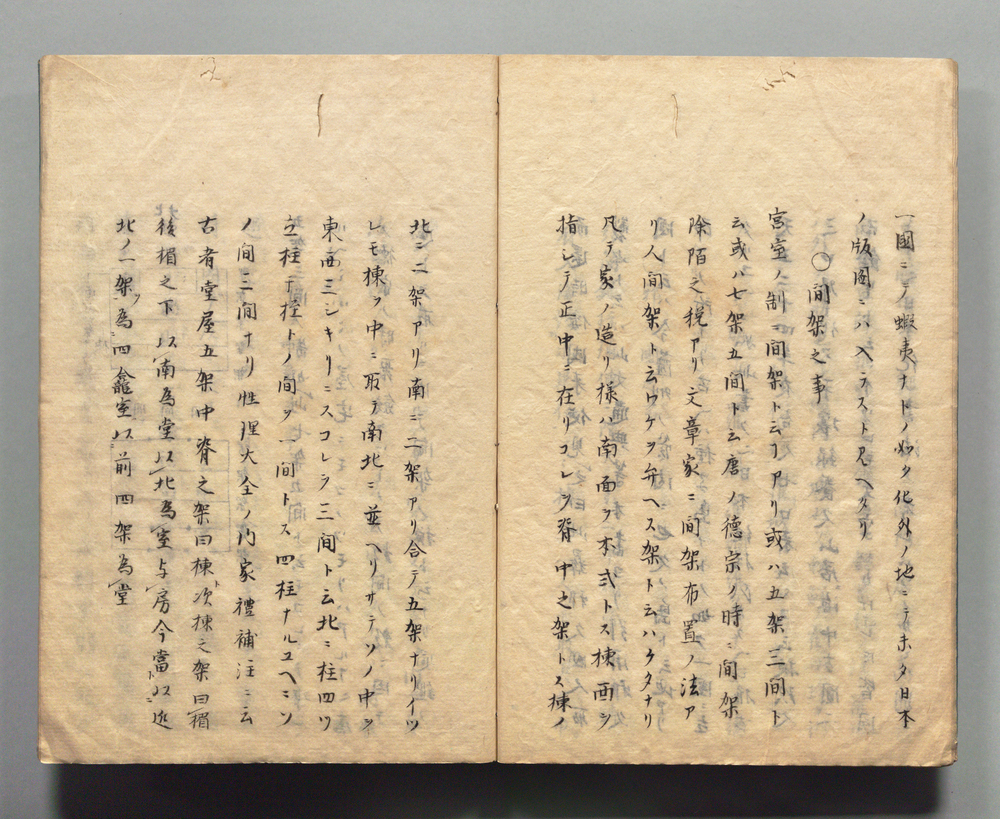 一國ニテ蝦夷ナトノ如ク化外ノ地ニテ未タ日本
ノ版圖ニハ入ラスト見ヘタリ
〇間架之事
宮室ノ制ニ間架ト云ヿアリ或ハ五架三間ト
云或ハ七架五間ト云唐ノ德宗ノ時ニ間架
除陌之税アリ文章家ニ間架布置ノ法ア
リ人間架ト云ワケヲ弁ヘス架ト云ハケタナリ
凡テ家ノ造リ様ハ南面ヲ本式トス棟西シ
指シテ正中ニ在リコレヲ脊中之架トス棟ノ
北ニ二架アリ南ニ二架アリ合テ五架ナリイツ
レモ棟ヲ中ニ取テ南北ニ並ヘリサテソノ中ヲ
東西三シキリニスコレヲ三間ト云北ニ柱四ツ
立柱ト柱トノ間ヲ一間トス四柱ナルユヘニソ
ノ間三間ナリ性理大全ノ内家禮補注ニ云
古者堂屋五架中脊之架曰棟次棟之架曰楣
後楣之下以南為堂以北為室与房今當以近
北ノ一架ヲ為四龕室以前四架為堂